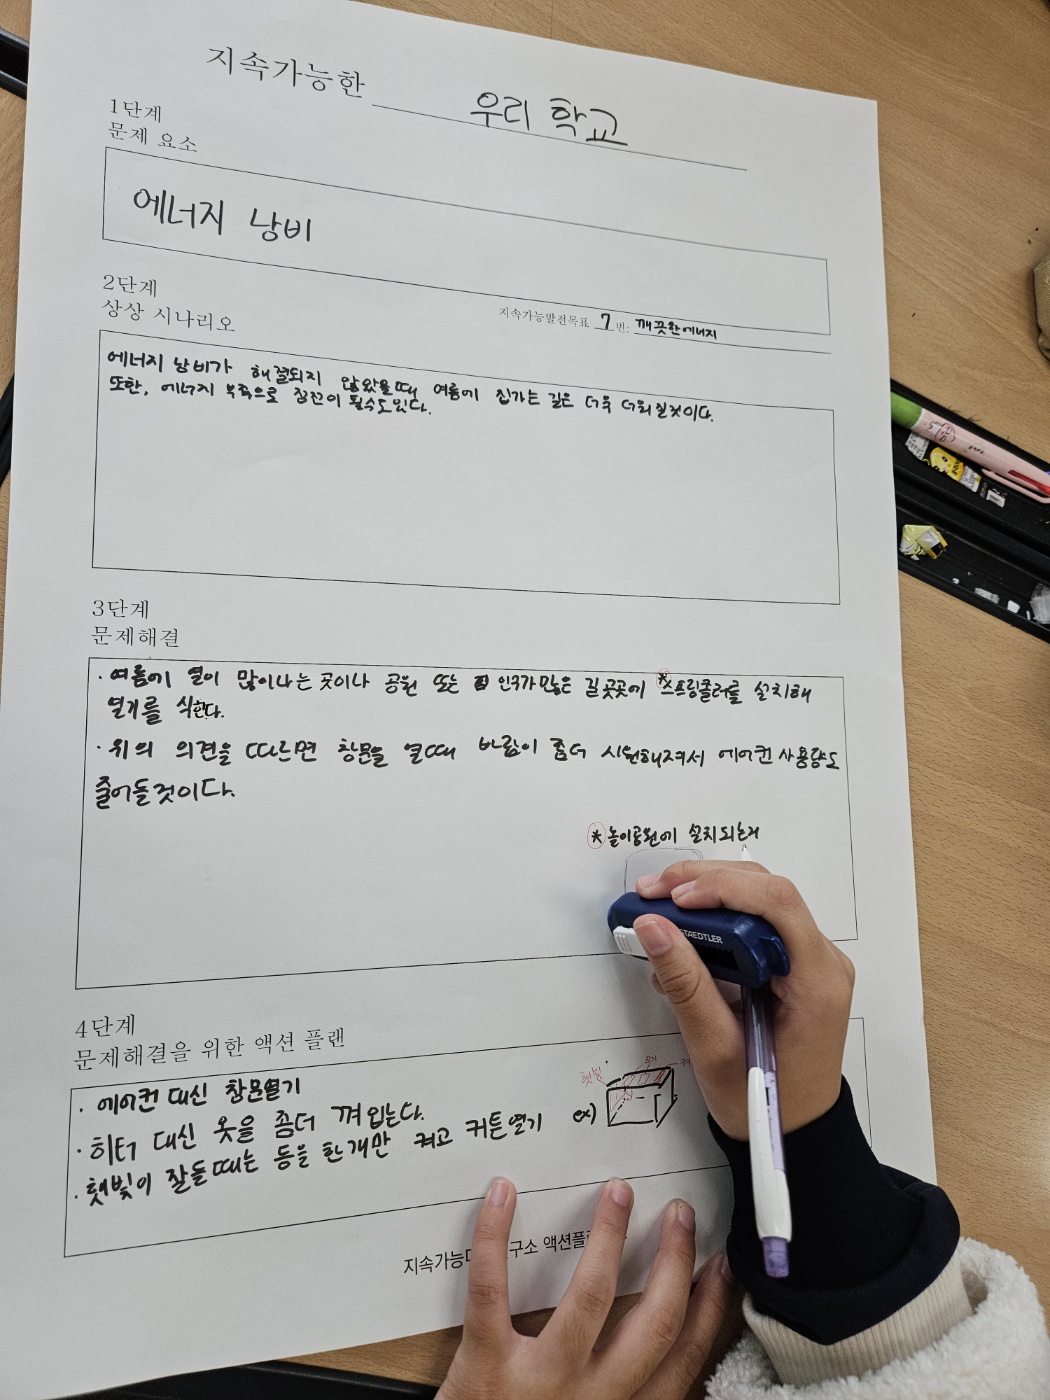 지속가능한 우리 학교
1단계
문제 요소
에너지 낭비
2단계
상상 시나리오
지속가능발전목표 7 번: 깨끗한에너지
에너지 낭비가 해결되지 않았을때 여름에 집가는 길은 더욱 더워질것이다.
또한, 에너지 부족으로 정전이 될수도있다.
3단계
문제해결
· 여름에 열이 많이나는 곳이나 공원 또는 인구가많은 길 곳곳에 *스프링쿨러를 설치해
열기를 식힌다.
· 위의 의견을 따르면 창문을 열때 바람이 좀더 시원해져서 에어컨 사용량도
줄어들것이다.
*놀이공원에 설치되는거
4단계
문제해결을 위한 액션 플랜
· 에어컨 대신 창문열기
· 히터 대신 옷을 좀더 껴입는다.
· 햇빛이 잘들때는 등을 한개만 켜고 커튼열기
ex)
햇빛
지속가능 구소 액션플
STAEDTLER